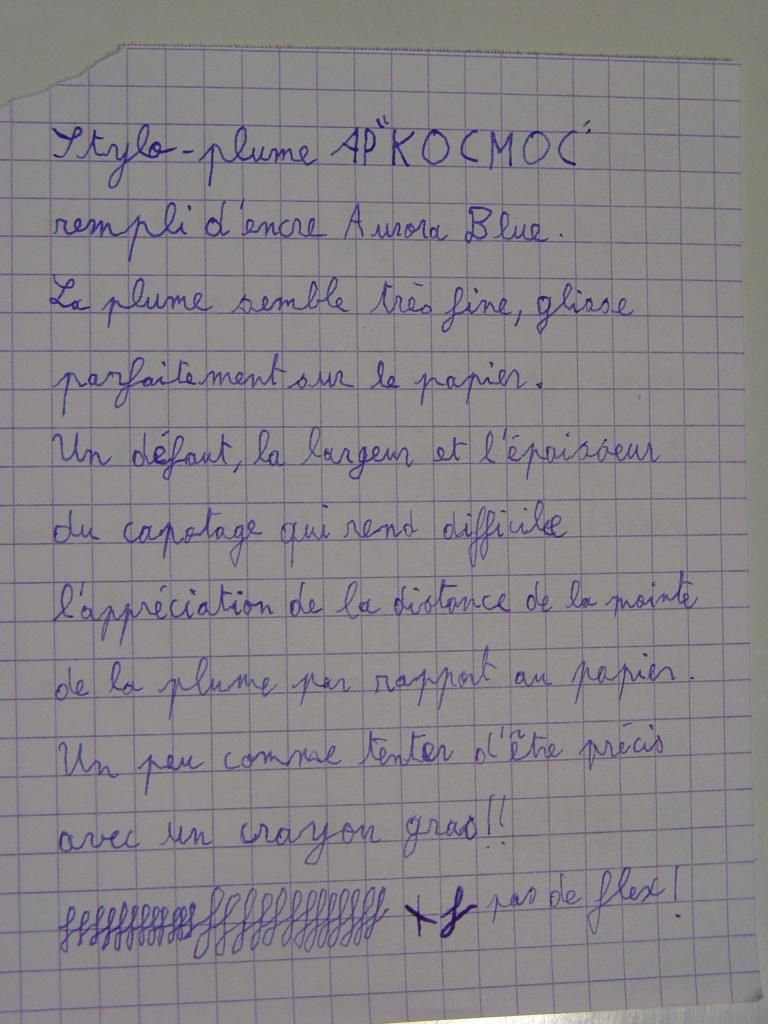 Stylo-plume AP "КОСМОС"
rempli d'encre Aurora Blue.
La plume semble très fine, glisse
parfaitement sur le papier.
Un défaut, la largeur et l'épaisseur
du capotage qui rend difficile
l'appréciation de la distance de la pointe
de la plume par rapport au papier.
Un peu comme tenter d'être précis
avec un crayon gras!!
pas de flex!